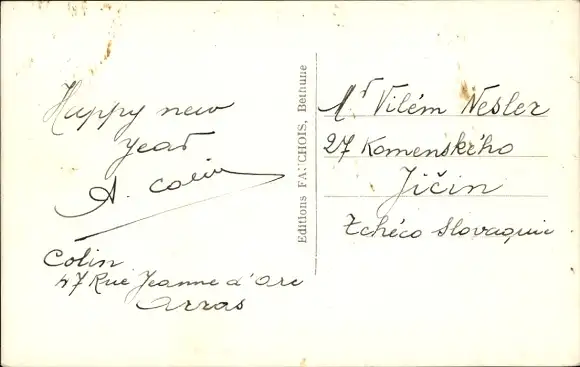 Happy new
year
A. Colin
Colin
47 Rue Jeanne d'Arc
Arras
Editions FAUCHOIS, Bethune
Mr Vilém Nesler
27 Komenského
Jičin
Tchéco Slovaquie